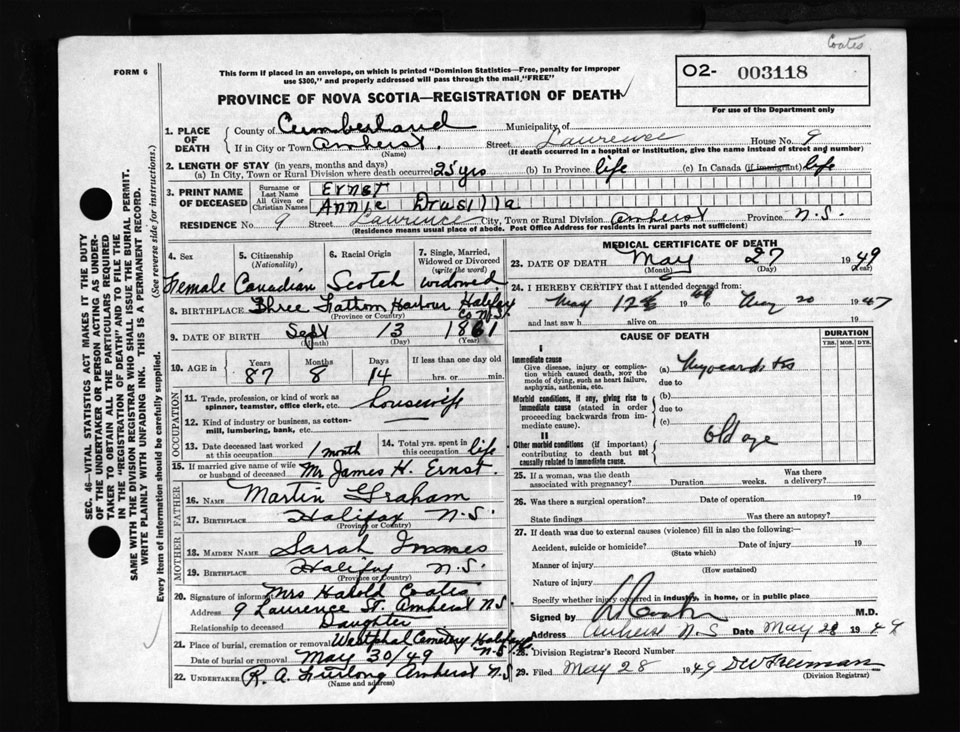 Coates
FORM 6
This form if placed in an envelope, on which is printed "Dominion Statistics—Free, penalty for improper
use $300," and properly addressed will pass through the mail "FREE"
O2- 003118
PROVINCE OF NOVA SCOTIA—REGISTRATION OF DEATH
For use of the Department only
1. PLACE OF DEATH
County of Cumberland Municipality of
If in City or Town Amherst. Street Lawrence House No. 9
(Name) (If death occurred in a hospital or institution, give the name instead of street and number)
2. LENGTH OF STAY (in years, months and days)
(a) In City, Town or Rural Division where death occurred 25 yrs (b) In Province life (c) In Canada (if immigrant) life
3. PRINT NAME OF DECEASED
Surname or Last Name Ernst
All Given or Christian Names Annie Drusilla
RESIDENCE No. 9 Street Lawrence City, Town or Rural Division Amherst Province N.S.
(Residence means usual place of abode. Post Office Address for residents in rural parts not sufficient)
4. Sex Female
5. Citizenship (Nationality) Canadian
6. Racial Origin Scotch
7. Single, Married, Widowed or Divorced (write the word) widowed
8. BIRTHPLACE Three Fathom Harbour Halifax Co N.S.
(Province or Country)
9. DATE OF BIRTH Sept 13 1861
(Month) (Day) (Year)
10. AGE in Years Months Days If less than one day old
87 8 14 hrs. or min.
OCCUPATION
11. Trade, profession, or kind of work as spinner, teamster, office clerk, etc. housewife
12. Kind of industry or business, as cotton-mill, lumbering, bank, etc.
13. Date deceased last worked at this occupation 1 month
14. Total yrs. spent in this occupation life
15. If married give name of wife or husband of deceased Mr James H. Ernst.
FATHER
16. NAME Martin Graham
17. BIRTHPLACE Halifax N.S.
(Province or Country)
MOTHER
18. MAIDEN NAME Sarah
19. BIRTHPLACE Halifax N.S.
(Province or Country)
20. Signature of informant Mrs Harold Coates
Address 9 Lawrence St. Amherst N.S.
Relationship to deceased Daughter
21. Place of burial, cremation or removal Westphal Cemetery Halifax N.S.
Date of burial or removal May 30/49
22. UNDERTAKER R. A. Furlong Amherst N.S
(Name and address)
MEDICAL CERTIFICATE OF DEATH
23. DATE OF DEATH May 27 1949
(Month) (Day) (Year)
24. I HEREBY CERTIFY that I attended deceased from:
May 19 to May 20 1947
and last saw h alive on 19
CAUSE OF DEATH
DURATION
YRS. MOS. DYS.
I
Immediate cause
Give disease, injury or complication which caused death, NOT the mode of dying, such as heart failure, asphyxia, asthenia, etc.
(a) Myocarditis
due to
Morbid conditions, if any, giving rise to immediate cause (stated in order proceeding backwards from immediate cause).
(b)
due to
(c)
II
Other morbid conditions (if important) contributing to death but not causally related to immediate cause.
Old age
25. If a woman, was the death associated with pregnancy? Duration weeks. Was there a delivery?
26. Was there a surgical operation? Date of operation 19
State findings Was there an autopsy?
27. If death was due to external causes (violence) fill in also the following:—
Accident, suicide or homicide? Date of injury 19
(State which)
Manner of injury
(How sustained)
Nature of injury
Specify whether injury occurred in industry, in home, or in public place
Signed by M.D.
Address Amherst N.S Date May 28 1949
28. Division Registrar's Record Number
29. Filed May 28 1949 DW Freeman
(Division Registrar)
SEC. 46—VITAL STATISTICS ACT MAKES IT THE DUTY
OF THE UNDERTAKER OR PERSON ACTING AS UNDER-
TAKER TO OBTAIN ALL THE PARTICULARS REQUIRED
IN THE "REGISTRATION OF DEATH" AND TO FILE THE
SAME WITH THE DIVISION REGISTRAR WHO SHALL ISSUE THE BURIAL PERMIT.
WRITE PLAINLY WITH UNFADING INK. THIS IS A PERMANENT RECORD.
Every item of information should be carefully supplied. (See reverse side for instructions.)